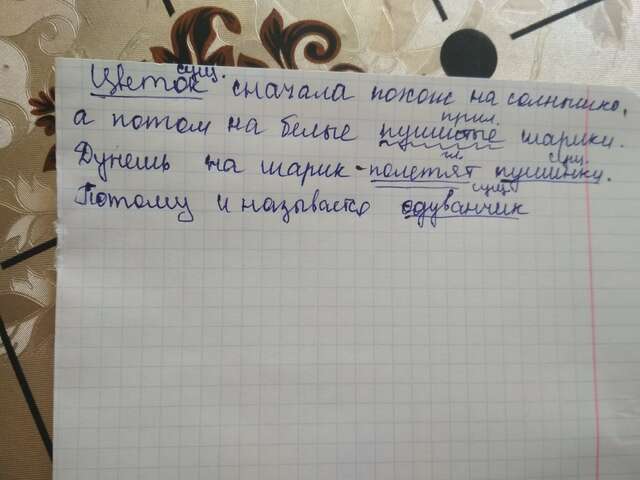 сущ.
Цветок сначала похож на солнышко,
прил.
а потом на белые пушистые шарики.
гл. сущ.
Дунешь на шарик - полетят пушинки.
сущ.
Потому и называется одуванчик